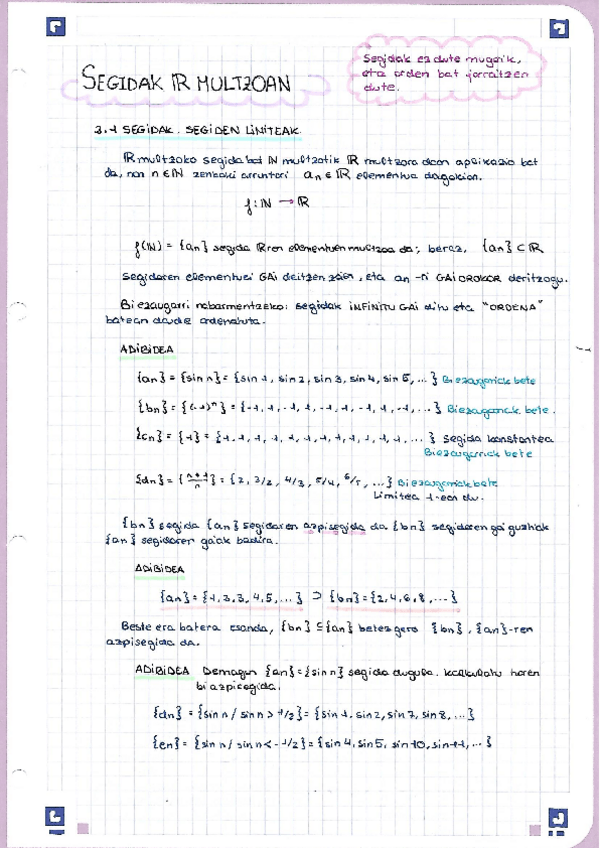 SEGIDAK IR MULTZOAN
Segidak ez dute mugarik,
eta orden bat jarraitzen
dute.
2.1 SEGIDAK. SEGIDEN LIMITEAK
IR multzoko segida bat IN multzotik IR multzora doan aplikazio bat
da, non n ∈ IN zenbaki arruntari an ∈ IR elementua dagokion.
f: IN → IR
f(IN) = {an} segida IRren elementuen multzoa da; beraz, {an} ⊂ IR
Segidaren elementuei GAI deitzen zaie, eta an-ri GAI OROKOR deritzogu.
Bi ezaugarri nabarmentzeko: segidak INFINITU GAI ditu eta "ORDENA"
batean daude ordenatuta.
ADIBIDEA
{an} = {sin n} = {sin 1, sin 2, sin 3, sin 4, sin 5, ...} Bi ezaugarriak bete
{bn} = {(-1)^n} = {-1, 1, -1, 1, -1, 1, -1, 1, -1, ...} Bi ezaugarriak bete.
{cn} = {1} = {1, 1, 1, 1, 1, 1, 1, 1, 1, 1, 1, ...} segida konstantea
Bi ezaugarriak bete
{dn} = {n+1/n} = {2, 3/2, 4/3, 5/4, 6/5, ...} Bi ezaugarriak bete
Limitea 1-ean du.
{bn} segida {an} segidaren azpisegida da {bn} segidaren gai guztiak
{an} segidaren gaiak badira.
ADIBIDEA
{an} = {1, 2, 3, 4, 5, ...} ⊃ {bn} = {2, 4, 6, 8, ...}
Beste era batera esanda, {bn} ⊆ {an} betez gero {bn}, {an}-ren
azpisegida da.
ADIBIDEA Demagun {an} = {sin n} segida dugula. Kalkulatu haren
bi azpisegida.
{dn} = {sin n / sin n > 1/2} = {sin 1, sin 2, sin 7, sin 8, ...}
{en} = {sin n / sin n < -1/2} = {sin 4, sin 5, sin 10, sin 11, ...}